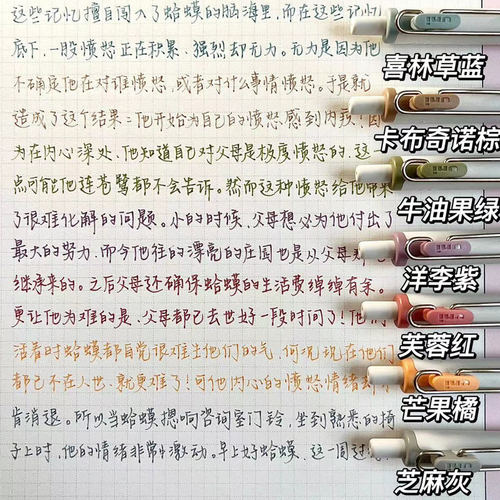 这些记忆擅自闯入了蛤蟆的脑海里,而在这些记忆
底下,一股愤怒正在积累,强烈却无力。无力是因为他
不确定他在对谁愤怒,或者对什么事情愤怒。于是就
造成了这个结果:他开始为自己的愤怒感到内疚!因
为在内心深处,他知道自己对父母是极度愤怒的,这
点可能他连苍鹭都不会告诉。然而这种愤怒给他带来
了很难化解的问题。小的时候,父母想必为他付出了
最大的努力,而今他住的漂亮的庄园也是从父母
继承来的。之后父母还确保蛤蟆的生活费绰绰有余。
更让他为难的是,父母都已去世好一段时间了!他们
活着时蛤蟆都自觉很难生他们的气,何况现在他们
都已不在人世,就更难了!可他内心的愤怒情绪却不
肯消退。所以当蛤蟆摁响咨询室门铃,坐到熟悉的椅
子上时,他的情绪非常激动。早上好蛤蟆,这一周过
喜林草蓝
卡布奇诺棕
牛油果绿
洋李紫
芙蓉红
芒果橘
芝麻灰